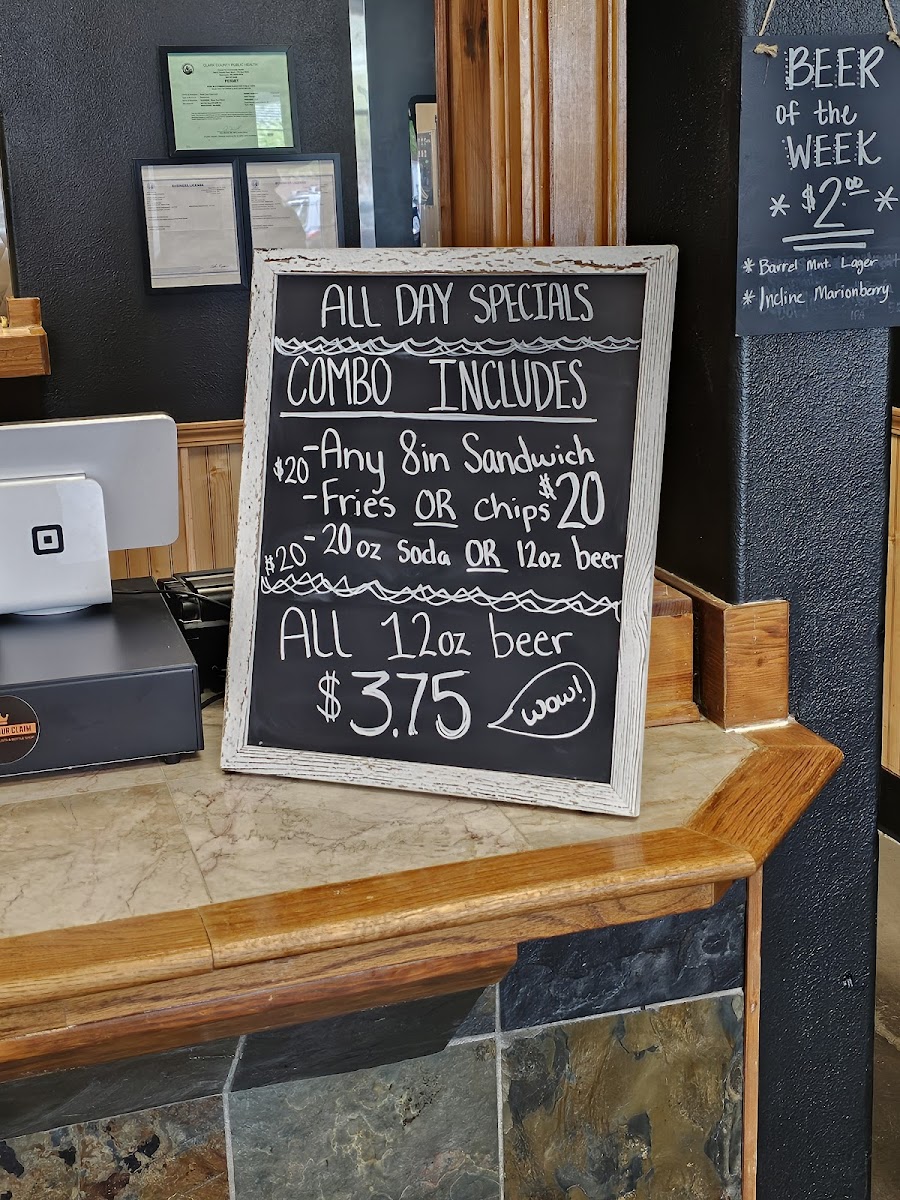 CLARK COUNTY PUBLIC HEALTH
PERMIT
BUSINESS LICENSE
BEER
of the
WEEK
* $2.00 *
* Barrel Mnt Lager
* Incline Marionberry
IPA
ALL DAY SPECIALS
COMBO INCLUDES
$20 -Any 8in Sandwich
-Fries OR chips $20
$20 -20 oz soda OR 12oz beer
ALL 12oz beer
$3.75 WOW!
UR CLAIM